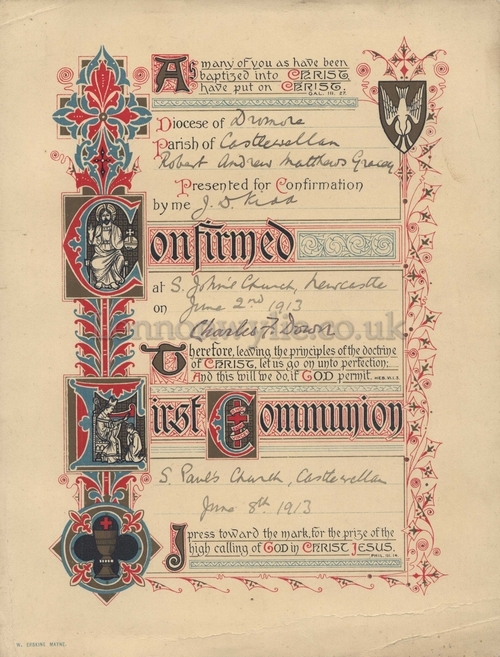 As many of you as have been
baptized into CHRIST,
have put on CHRIST.
GAL. III. 27.
Diocese of Dromore
Parish of Castlewellan
Robert Andrew Matthews Gracey
Presented for Confirmation
by me J. D. Kidd
Confirmed
at S. John's Church, Newcastle
on June 2nd 1913
Charles F. Down
Therefore, leaving the principles of the doctrine
of CHRIST, let us go on unto perfection;
And this will we do, if GOD permit. HEB. VI. 1. 3.
First Communion
S. Paul's Church, Castlewellan
June 8th 1913
I press toward the mark, for the prize of the
high calling of GOD in CHRIST JESUS.
PHIL. III. 14.
W. ERSKINE MAYNE.